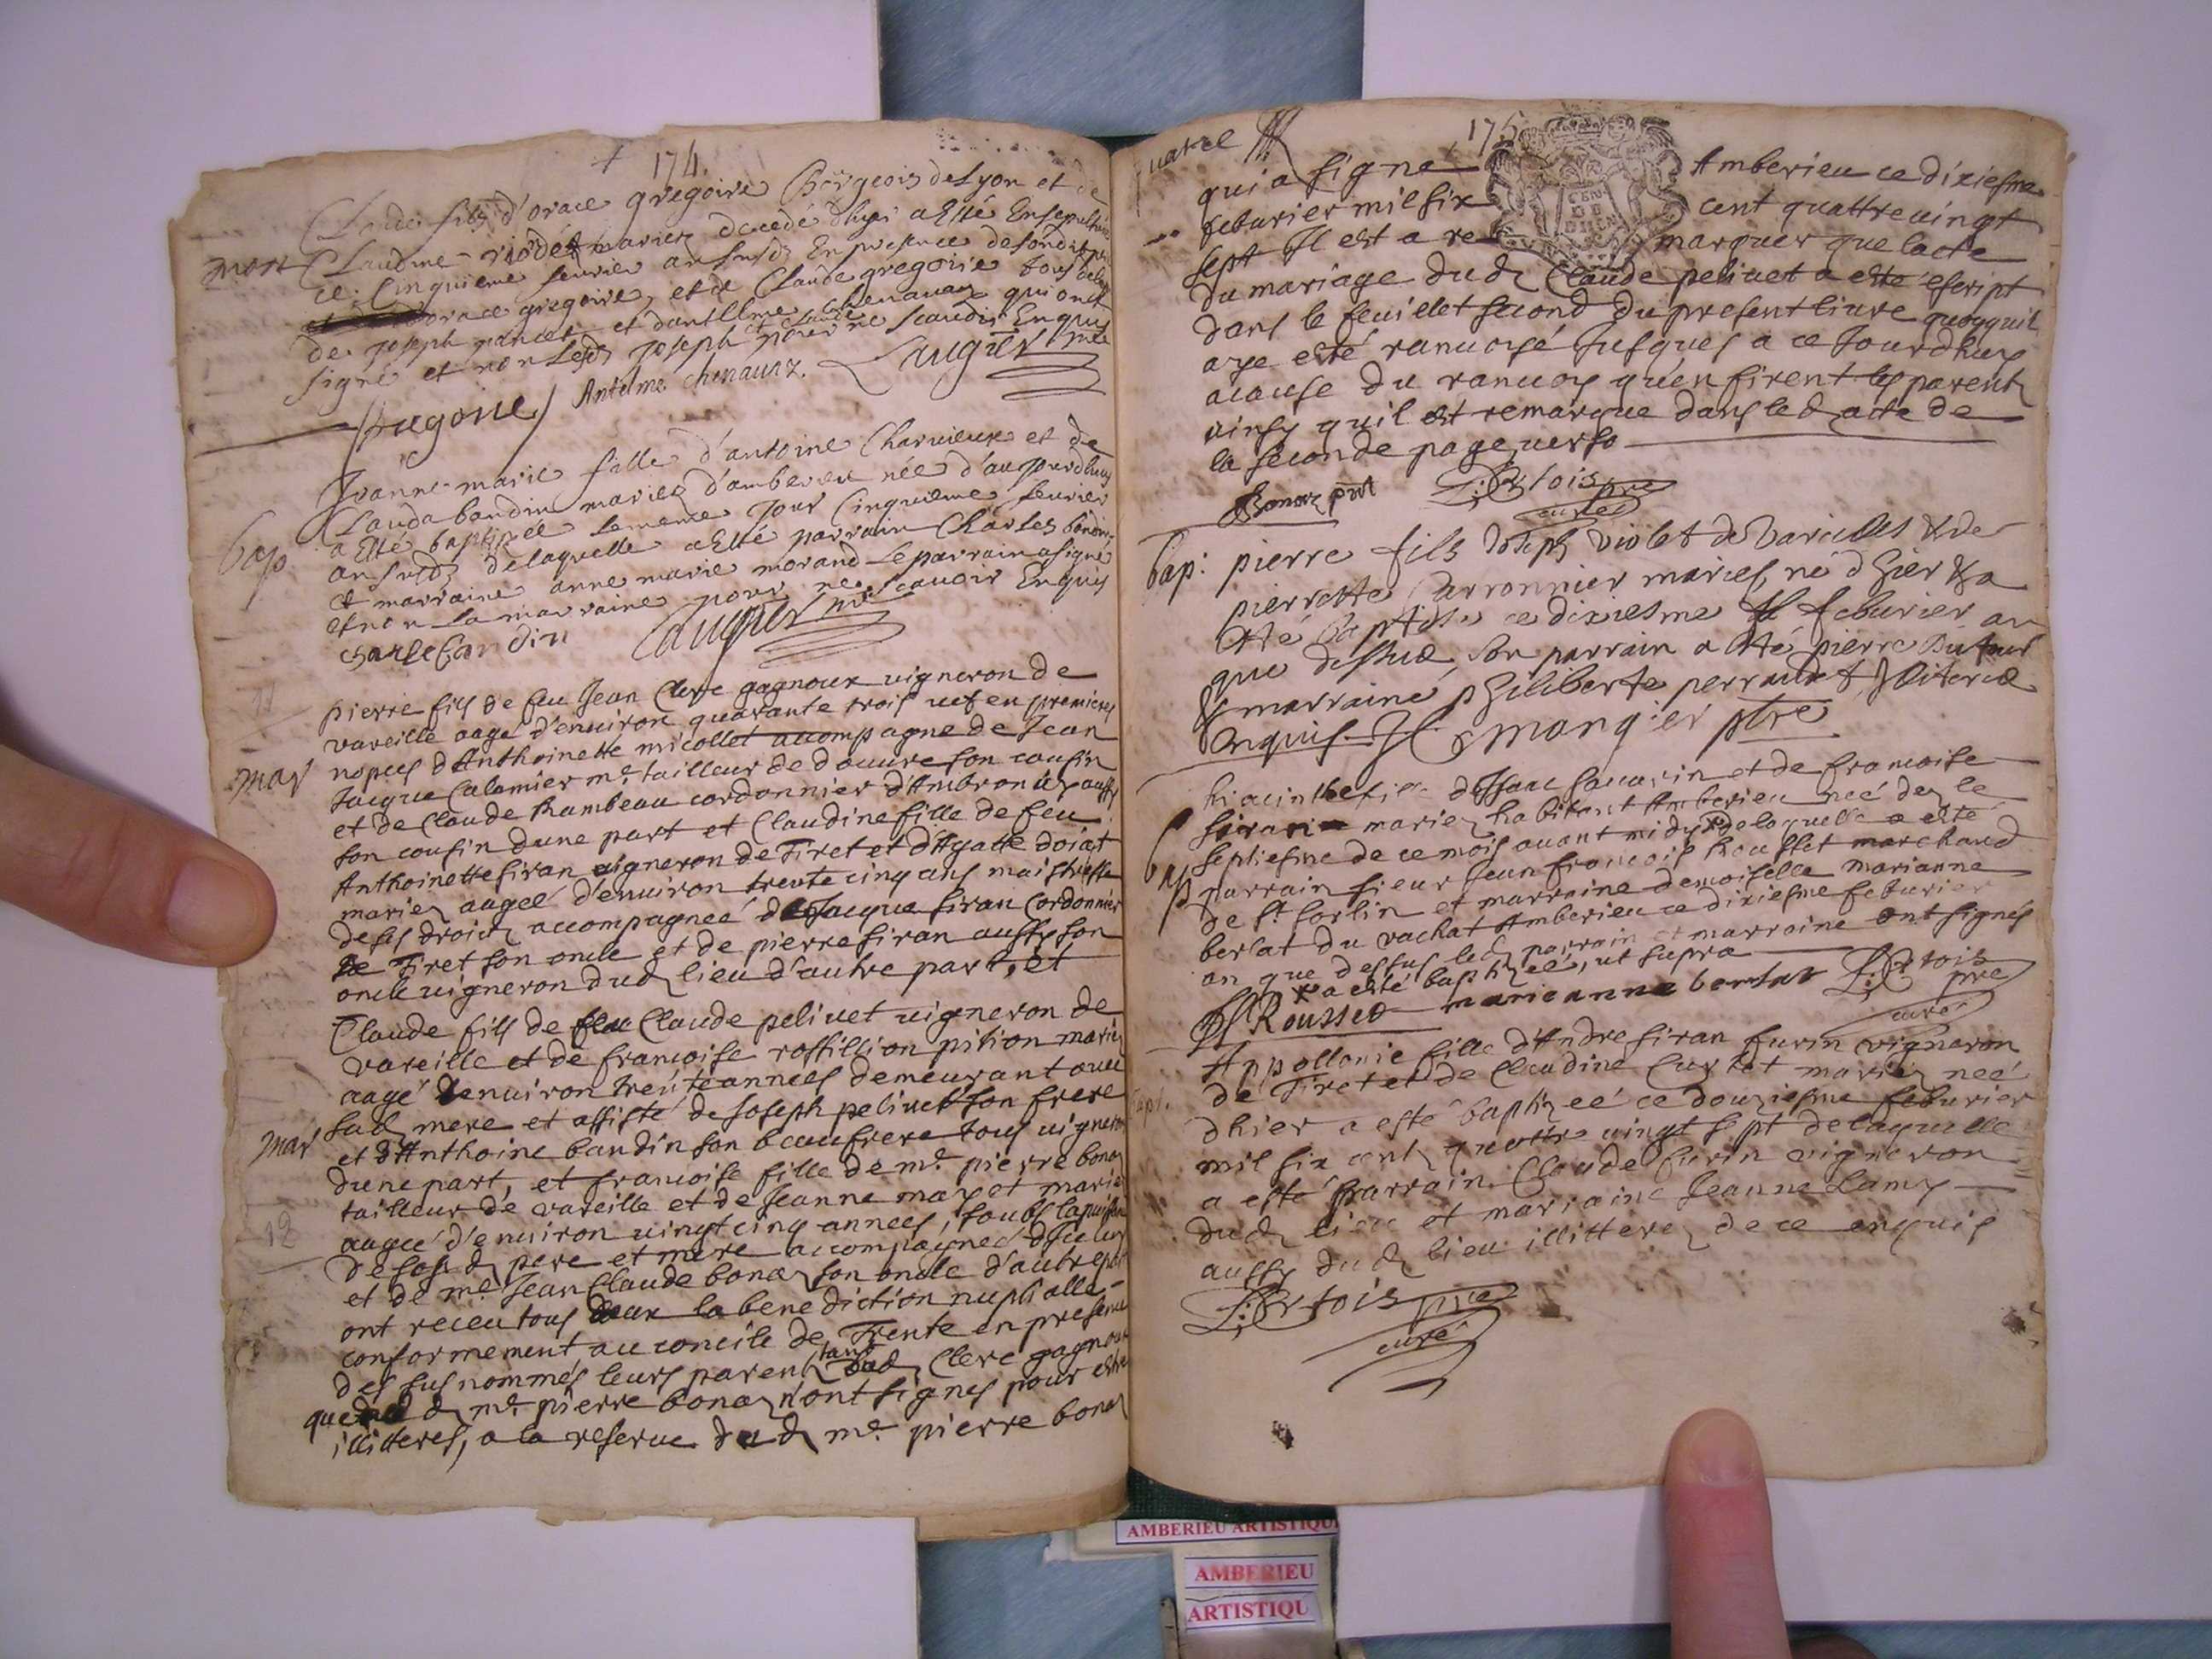 174.
Claude fils d'orace gregoire Borgeois de Lyon et de
mort
Claudine mariez decedé d'hyer a Esté Ensepulture
ce Cinquieme feurier an susd En presence de
orace gregoire, et de Claude gregoire tous
de joseph et d'antelme chenauaz qui ont
signé et non led joseph et Claude pour ne scauoir Enquis
gregoire Antelme chenauaz. Laugier ptre
Jeanne-marie fille d'antoine Charuieux et de
bap
Clauda baudin mariez d'amberieu née d'aujourdhuy
a Esté baptizée le meme jour Cinquieme feurier
an susd delaquelle a Esté parrain Charles baudin
et marraine anne marie morand le parrain a signé
et non la marraine pour ne scauoir Enquis
charle baudin Laugier ptre
11
pierre fils de feu Jean Clerc gagnoux vigneron de
vareille aagé d'enuiron quarante trois vef en premieres
mar
nopces d'Anthoinette micollet accompagne de Jean
Jacque Calamier me tailleur de douure son cousin
et de Claude Rambeau cordonnier d'Ambronay aussy
son cousin dune part et Claudine fille de feu
Anthoinette firan vigneron de Tiret et d'Agatte doiat
mariez aagée d'enuiron trente cinq ans maistresse
de ses droicts accompagneé de Jacque firan Cordonnier
de Tiret son oncle et de pierre firan aussy son
oncle vigneron dud lieu d'autre part, et
Claude fils de feu Claude peliuet vigneron de
vareille et de francoise rossillion pition mariez
aagé denuiron trente annees demeurant auec
sad mere et assisté de Joseph peliuet son frere
mar
et d'Anthoine baudin son beaufrere tous vignerons
dune part, et francoise fille de me pierre bonaz
tailleur de vareille et de Jeanne marie
12
aageé d'enuiron vingt cinq annees, soubs la puissance
de sesd pere et mere accompagneé d'iceluy
et de me Jean Claude bonaz son oncle d'autre part
ont receu tous deux la benediction nuptialle
conformement au concile de Trente en presence
des sus nommés leurs parents tant dud Clerc gagnoux
que dud me pierre bonaz n'ont signes pour estre
illitteres, a la reserue dud me pierre bonaz
quatre
175
qui a signe Amberieu ce dixiesme
feburier mil six cent quattre vingt
sept Il est a remarquer que lacte
du mariage dud Claude peliuet a esté escript
dans le feuillet second du present liure quoyquil
aye esté ranuoyé Jusques a ce Jourdhuy
acause du ranuoy qu'en firent les parents
ainsy quil est remarque dans led acte de
la seconde page verso
Bonaz pnt L: Ortois ptre
curé
bap: pierre fils Joseph violet de Vareilles & de
pierrette Carronnier maries, né d hier & a
esté Baptisé ce dixiesme feburier an
que dessus, son parrain a esté pierre Dufour
& marraine philiberte perraudet Illiterés
Enquis. mongier ptre
hiacinthe fille d'Isaac sauarin et de francoise
siran mariez habitant Amberieu neé des le
bap
septiesme de ce mois auant midy delaquelle a esté
parrain sieur Jean francois Rousset marchand
de st sorlin et marraine demoiselle marianne
berlat du vachat Amberieu ce dixiesme feburier
an que dessus led parrain et marraine ont signés
x a esté baptizeé, ut supra
Rousset marieanne berlat L: Ortois ptre
curé
Appollonie fille d'Andre firan furin vigneron
bap.
de Tiret et de Claudine Curtet mariez neé
dhier a esté baptizeé ce douziesme feburier
mil six cents quattre vingt sept delaquelle
a esté parrain Claude furin vigneron
dud lieu et marraine Jeanne Lamy
aussy dud lieu illitterez de ce enquis
L: Ortois ptre
curé
AMBERIEU ARTISTIQU
AMBERIEU
ARTISTIQU